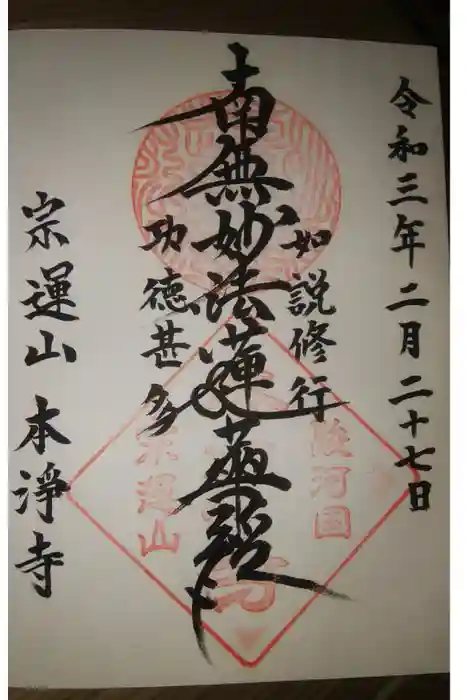 令和三年二月二十七日
如説修行
南無妙法蓮華経
功徳甚多
宗運山 本淨寺
駿河国
宗運山